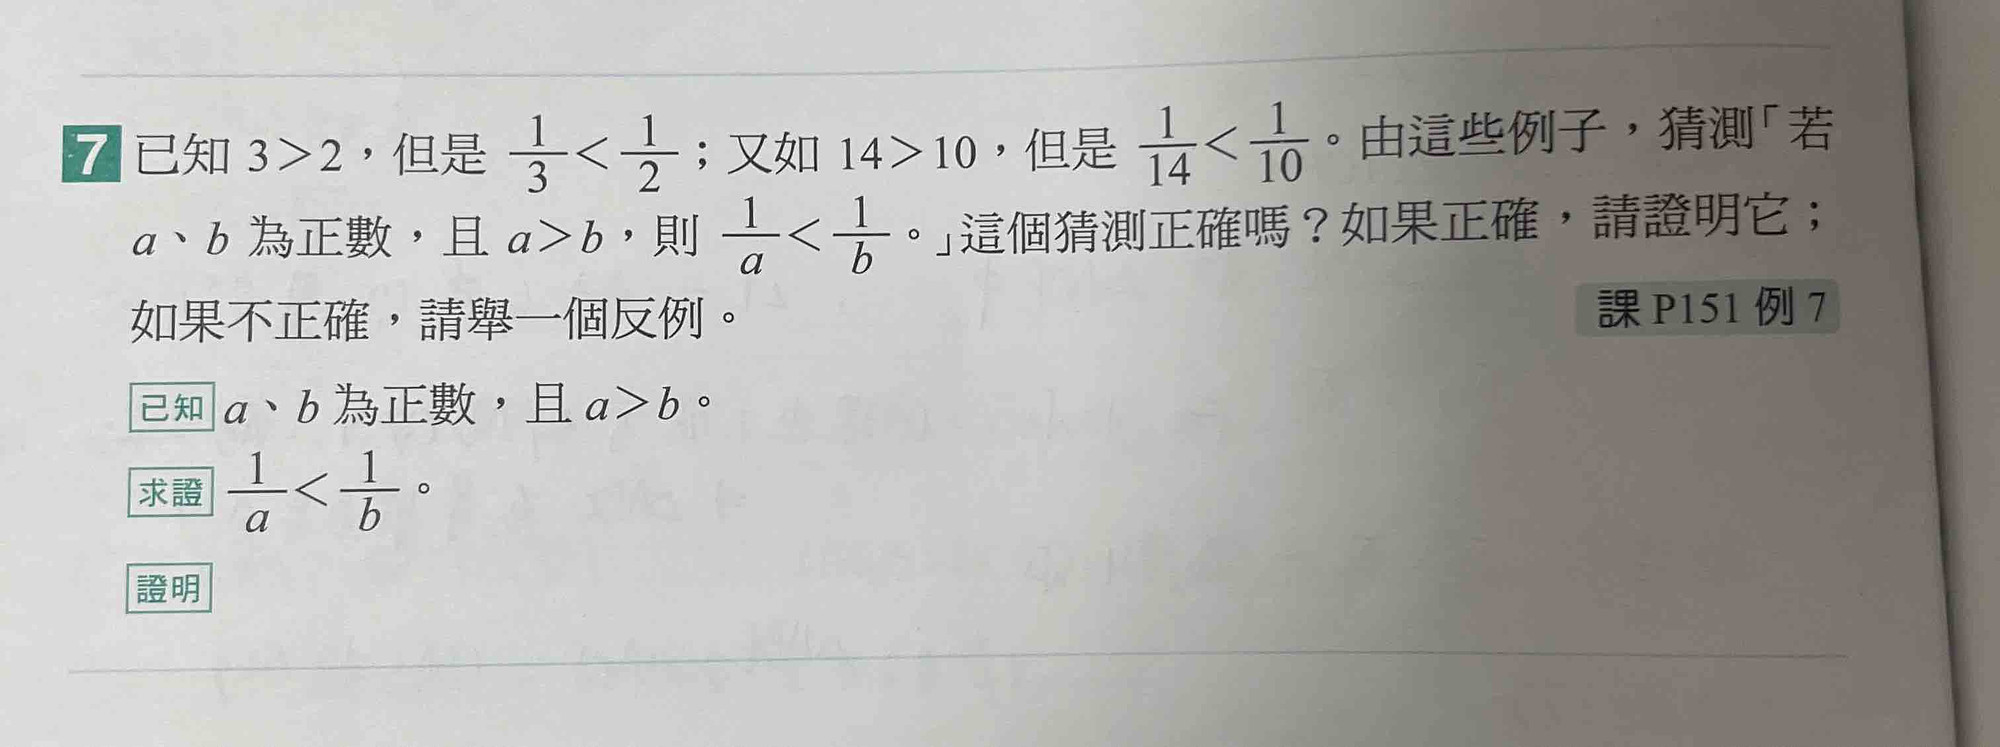 7 已知 3＞2，但是 1/3＜1/2；又如 14＞10，但是 1/14＜1/10。由這些例子，猜測「若
a、b 為正數，且 a＞b，則 1/a＜1/b。」這個猜測正確嗎？如果正確，請證明它；
如果不正確，請舉一個反例。
課 P151 例 7
已知 a、b 為正數，且 a＞b。
求證 1/a＜1/b。
證明